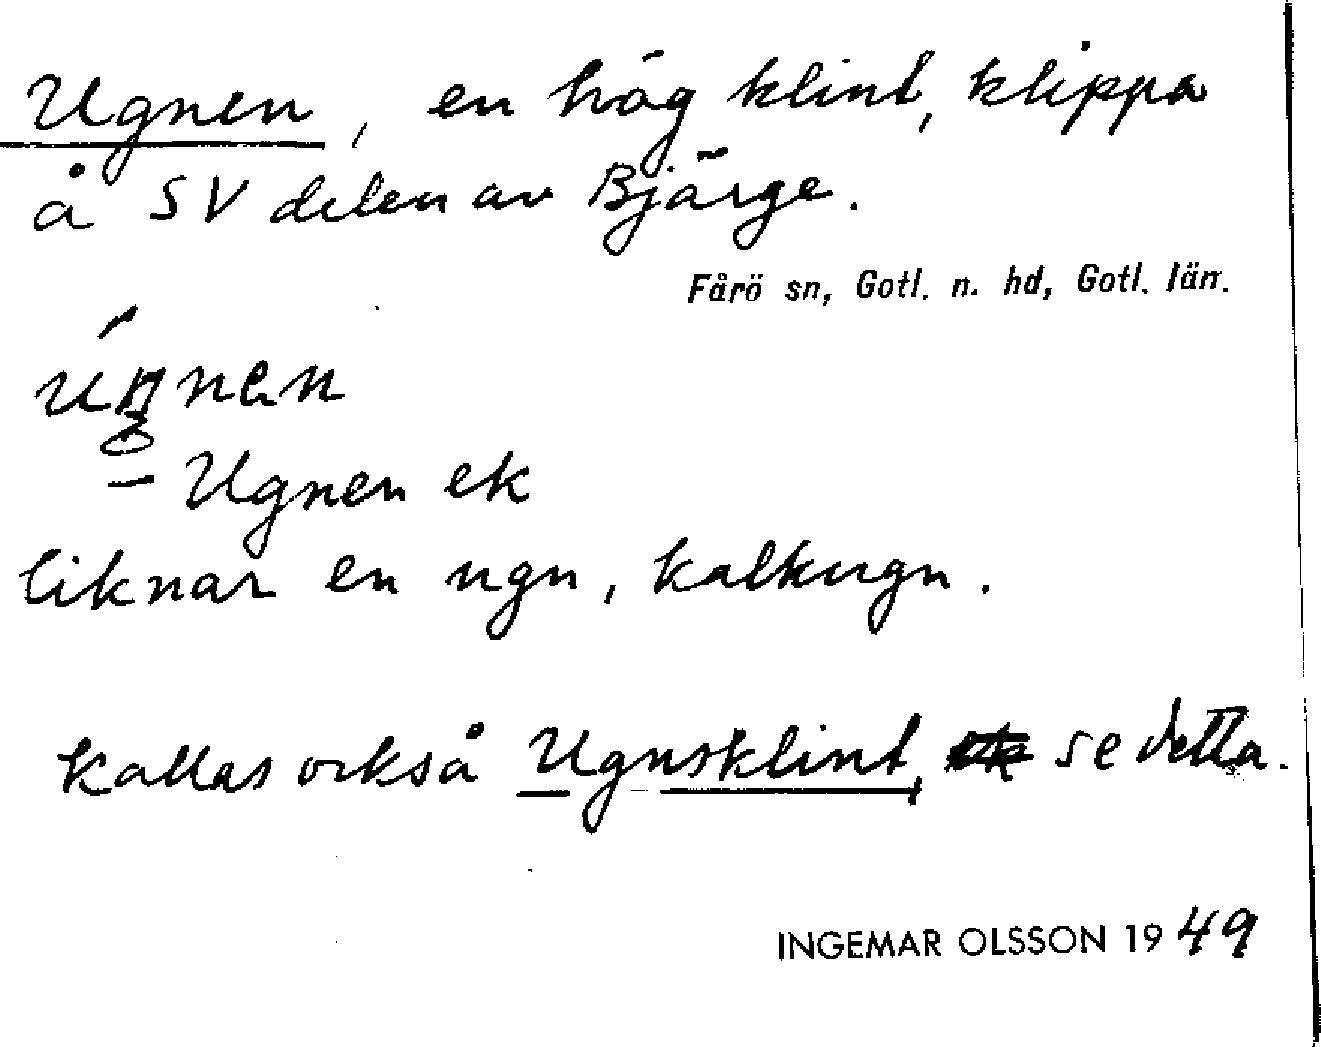 Ugnen, en hög klint, klippa
å SV delen av Bjärge.
Fårö sn, Gotl. n. hd, Gotl. län.
– Ugnen ek
liknar en ugn, kalkugn.
kallas också Ugnsklint, se detta.
INGEMAR OLSSON 1949